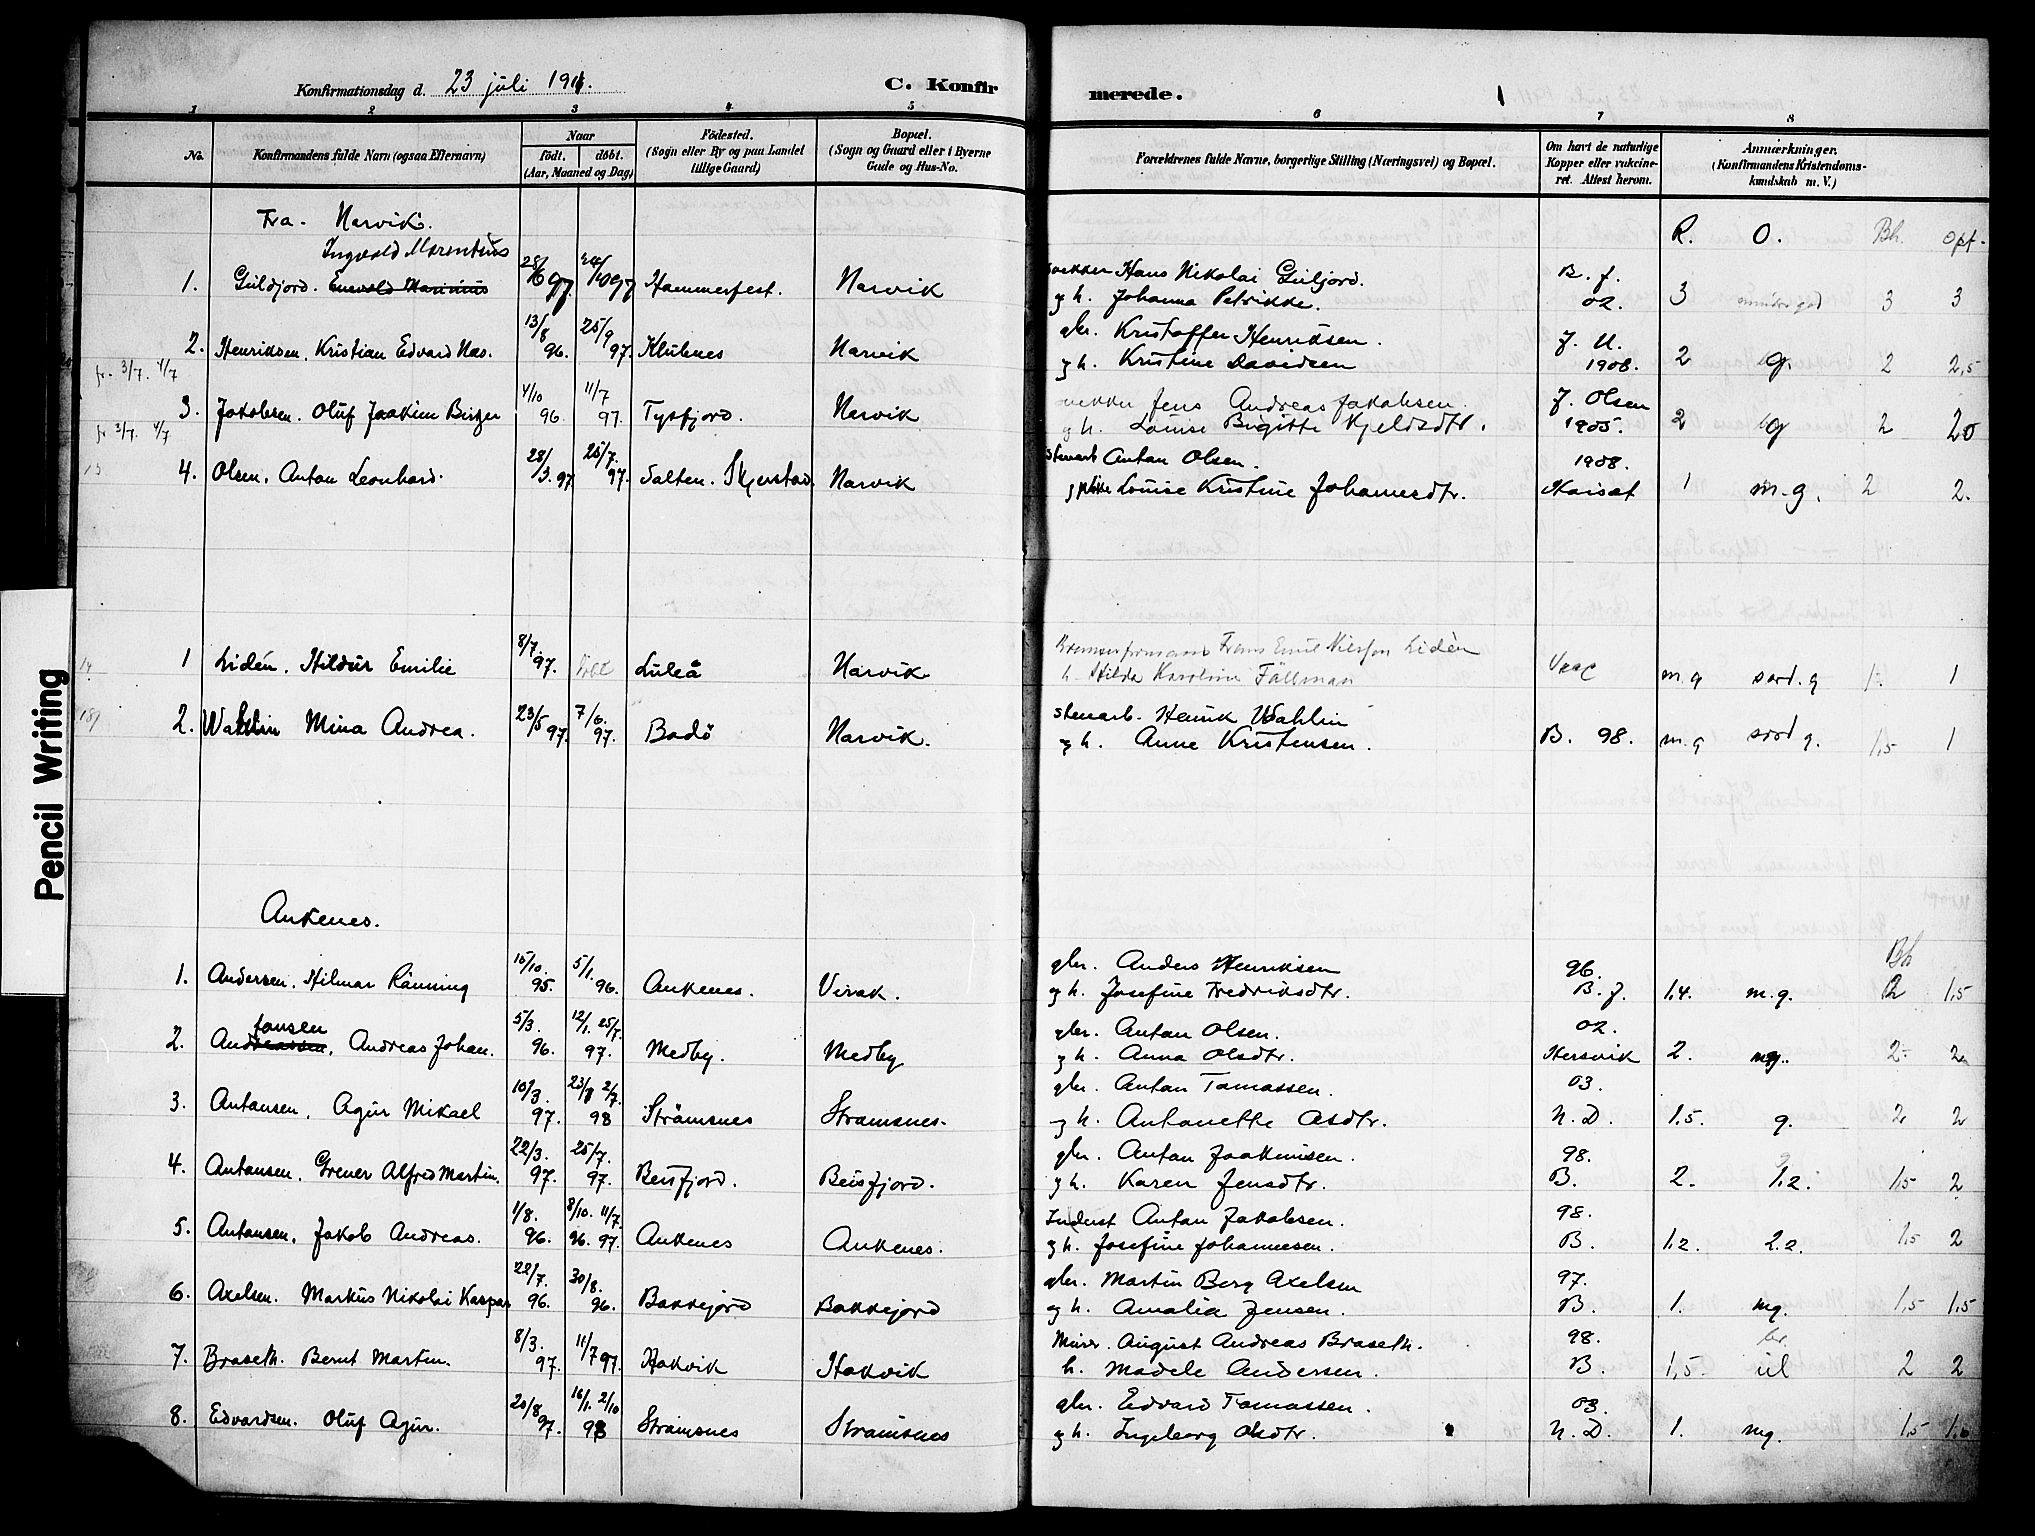 Konfirmationsdag d. 23 juli 1911. C. Konfirmerede. 1
1 2 3 4 5 6 7 8
No. Konfirmandens fulde Navn (ogsaa Efternavn) Naar født. døbt. (Aar, Maaned og Dag) Fødested. (Sogn eller By og paa Landet tillige Gaard) Bopæl. (Sogn og Gaard eller i Byerne Gade og Hus-No. Forældrenes fulde Navne, borgerlige Stilling (Næringsvei) og Bopæl. Om havt de naturlige Kopper eller vakcineret. Attest herom. Anmærkninger. (Konfirmandens Kristendomskundskab m. V.)
Fra. Narvik. R. O. Bh. opf.
Ingvald Marentius
1. Guldjord. Enevold Marinius 28/6 97. 24/10 97 Hammerfest. Narvik Hans Nikolai Guljord. B. J.
g h. Johanna Petrikke. 02. 3 mindre god 3 3
2. Henriksen, Kristian Edvard Nas. 13/8 96. 25/9 97. Klubnes Narvik gbr. Kristoffer Henriksen. J. U.
g h. Kristine Davidsen 1908. 2 g. 2 2,5
fr. 3/7. 4/7
3. Jakobsen. Oluf Joakim Birger 4/10 96. 11/7 97. Tysfjord. Narvik Jens Andreas Jakobsen. J. Olsen
g h. Louise Birgitte Kjeldsdtr. 1905. 2 g 2 20
fr. 3/7. 4/7
4. Olsen, Anton Leonhard. 28/3. 97 25/7. 97. Salten. Skjerstad Narvik Stenarb Anton Olsen. 1908.
Louise Kristine Johannesdtr. Kaisat 1 m.g. 2 2.
14. 1 Lidén. Hildur Emilie 8/7 97. Luleå Narvik Bremserformann Frans Emil Nilsson Lidén
h. Hilda Karoline Fällman Vacc m.g særd. g 1
2. Wahlin Mina Andrea. 23/5 97. 7/6. 97. Bodö Narvik. Stenarb. Henrik Wahlin
g h. Anne Kristensen. B. 98. m.g særd g. 1,5 1
Ankenes.
Bh
1. Andersen. Hilmar Rönning 15/10. 95. 5/1. 96. Ankenes. Virak. gbr. Anders Henriksen 96.
g h. Josefine Fredriksdtr. B. J. 1.4. m.g. 2 1,5
tonsen
2. Andreassen, Andreas Johan. 5/3. 96. 12/1. 25/7. 97. Medby. Medby gbr. Anton Olsen. 02.
g h. Anna Olsdtr. Hersvik 2. mg. 2- 2
3. Antonsen, Agur Mikael 10/3. 97. 23/8 2/7. 98 Strömsnes Stramsnes. gbr. Anton Tomassen. 03.
g h. Antonette Asdtr. N. D. 1.5. g. 2 2
4. Antonsen, Grener Alfred Martin. 22/3. 97. 25/7. 97. Beisfjord. Beisfjord. gbr. Anton Joakimsen. 98.
g h. Karen Jensdtr. B. 2. 1.2. 1,5 2
5. Antonsen, Jakob Andreas. 1/8. 96. 8/10. 11/7. 96. 97. Ankenes Ankenes. Inderst Anton Jakobsen. 98.
g h. Josefine Johannesen. B. 1.2. 2.2. 1,5 2
6. Axelsen. Markus Nikolai Kaspar 22/7. 96. 30/8. 96. Bakkejord Bakkejord gbr. Martin Berg Axelsen 97.
g h. Amalia Jensen. B. 1. mg. 1,5 1,5
7. Braseth. Bernt Martin. 8/3. 97. 11/7 97. Hakvik Hakvik Murer. August Andreas Braseth. 98.
h. Madele Andersen. B. 1,5. ul 2 2
8. Edvardsen. Oluf Agur. 20/8 97. 16/1. 2/10 98 Stramsnes Stramsnes gbr. Edvard Tomassen. 03.
g h. Ingeborg Olsdtr. N. D. 1. mg. 1,5
Pencil Writing